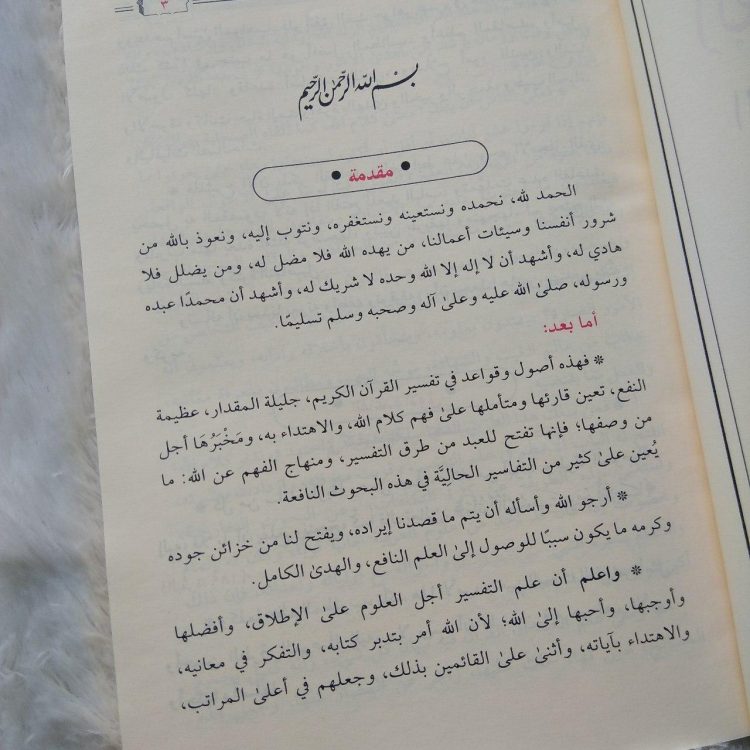 ٣
بسم الله الرحمن الرحيم
مقدمة
الحمد لله، نحمده ونستعينه ونستغفره، ونتوب إليه، ونعوذ بالله من
شرور أنفسنا وسيئات أعمالنا، من يهده الله فلا مضل له، ومن يضلل فلا
هادي له، وأشهد أن لا إله إلا الله وحده لا شريك له، وأشهد أن محمدًا عبده
ورسوله، صلىٰ الله عليه وعلىٰ آله وصحبه وسلم تسليمًا.
أما بعد:
* فهذه أصول وقواعد في تفسير القرآن الكريم، جليلة المقدار، عظيمة
النفع، تعين قارئها ومتأملها علىٰ فهم كلام الله، والاهتداء به، ومَخْبَرُهَا أجل
من وصفها؛ فإنها تفتح للعبد من طرق التفسير، ومنهاج الفهم عن الله: ما
يُعين علىٰ كثير من التفاسير الحالِيَّة في هذه البحوث النافعة.
* أرجو الله وأسأله أن يتم ما قصدنا إيراده، ويفتح لنا من خزائن جوده
وكرمه ما يكون سببًا للوصول إلىٰ العلم النافع، والهدىٰ الكامل.
* واعلم أن علم التفسير أجل العلوم علىٰ الإطلاق، وأفضلها
وأوجبها، وأحبها إلىٰ الله؛ لأن الله أمر بتدبر كتابه، والتفكر في معانيه،
والاهتداء بآياته، وأثنىٰ علىٰ القائمين بذلك، وجعلهم في أعلىٰ المراتب،